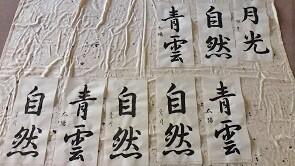 月光
自然
青雲
青雲
自然
自然
青雲
自然